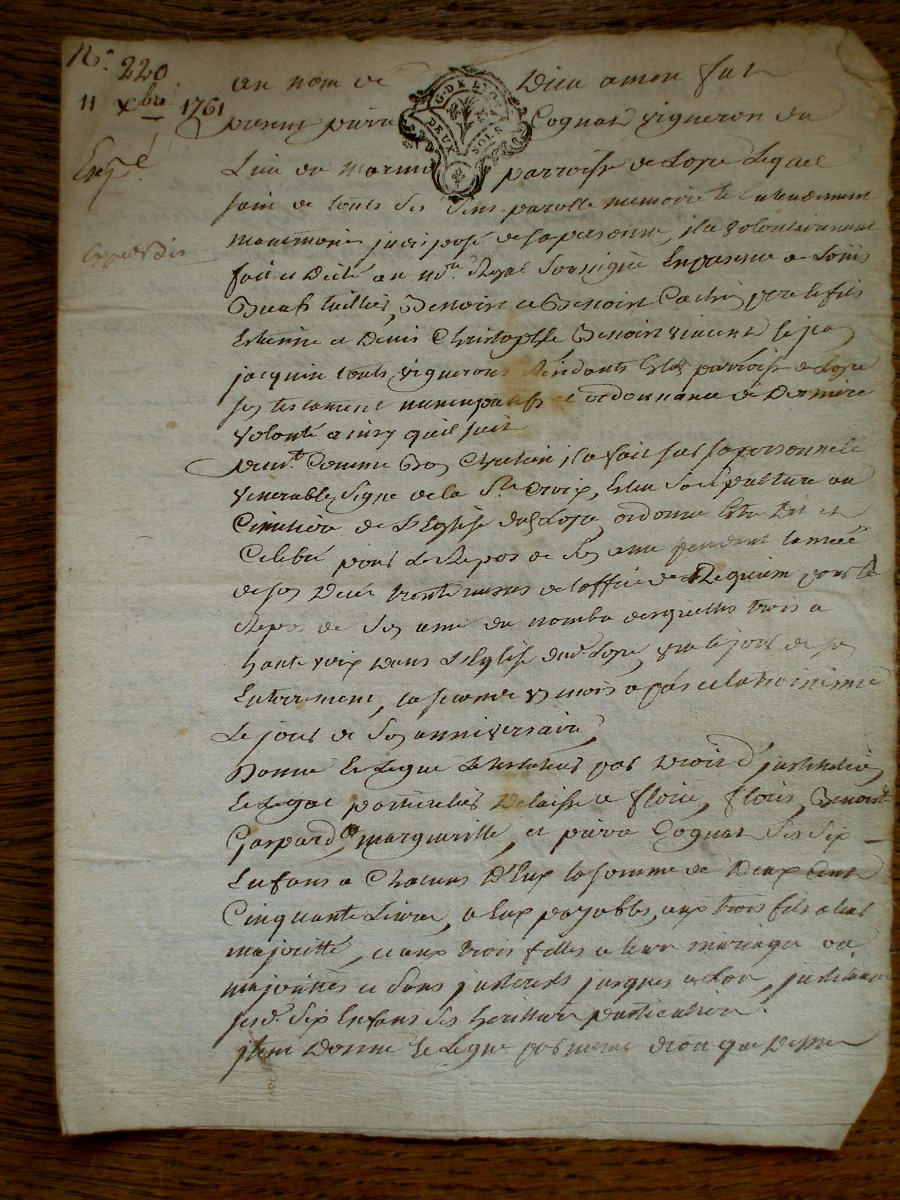 N.° 220
11 xbre 1761
Exp.é
Expedié
G. DE LYON
DEUX SOLS
au nom de Dieu amen fut
present pierre Cognat vigneron du
Lieu de marnie parroisse de Loyre Lequel
sain de touts ses sens parolle memoire et entendement
neanmoins indisposé de sa personne, il a volontairement
fait et dicté au no.re Royal soussigné En presence de Loüis
tuillier, Benoist et Benoist pere et fils
Estienne et Denis Christophle Benoist vincent et jean
jacquin touts vignerons Residants Esd. parroisse de Loyre
son testament nuncupatif et ordonnance de Derniere
volonté ainsy quil suit
prem.t Comme Bon Chretien il a fait sur sa personne le
venerable signe de la S.te Croix, Eslu sa sepulture au
Cimetiere de L'Eglise dud. Loyre, ordonne Estre Dit et
Celebré pour Le Repos de son ame pendant L'année
de son Decés trente messes de l'office de Requiem pour le
Repos de son ame du nombre desquelles trois a
haute voix Dans L'Eglise dud. Loyre, une le jour de son
Enterrement, la seconde mois aprés et la troisieme
Le jour de son anniversaire,
Donne et Legue Le testateur par Droit D'institution
et Legat particulier Delaisse a fleurie, floris, Benoist
Gaspard, margueritte, et pierre Cognat ses six
Enfans a Chacun D'Eux la somme de Deux Cent
Cinquante Livres, a Eux payables, aux trois fils a leur
majoritté, et aux trois filles a leur mariage ou
majorités et sans interests jusques alors, instituant
sesd. six Enfans ses heritiers particuliers.
jtem Donne et Legue par meme droit que Dessus